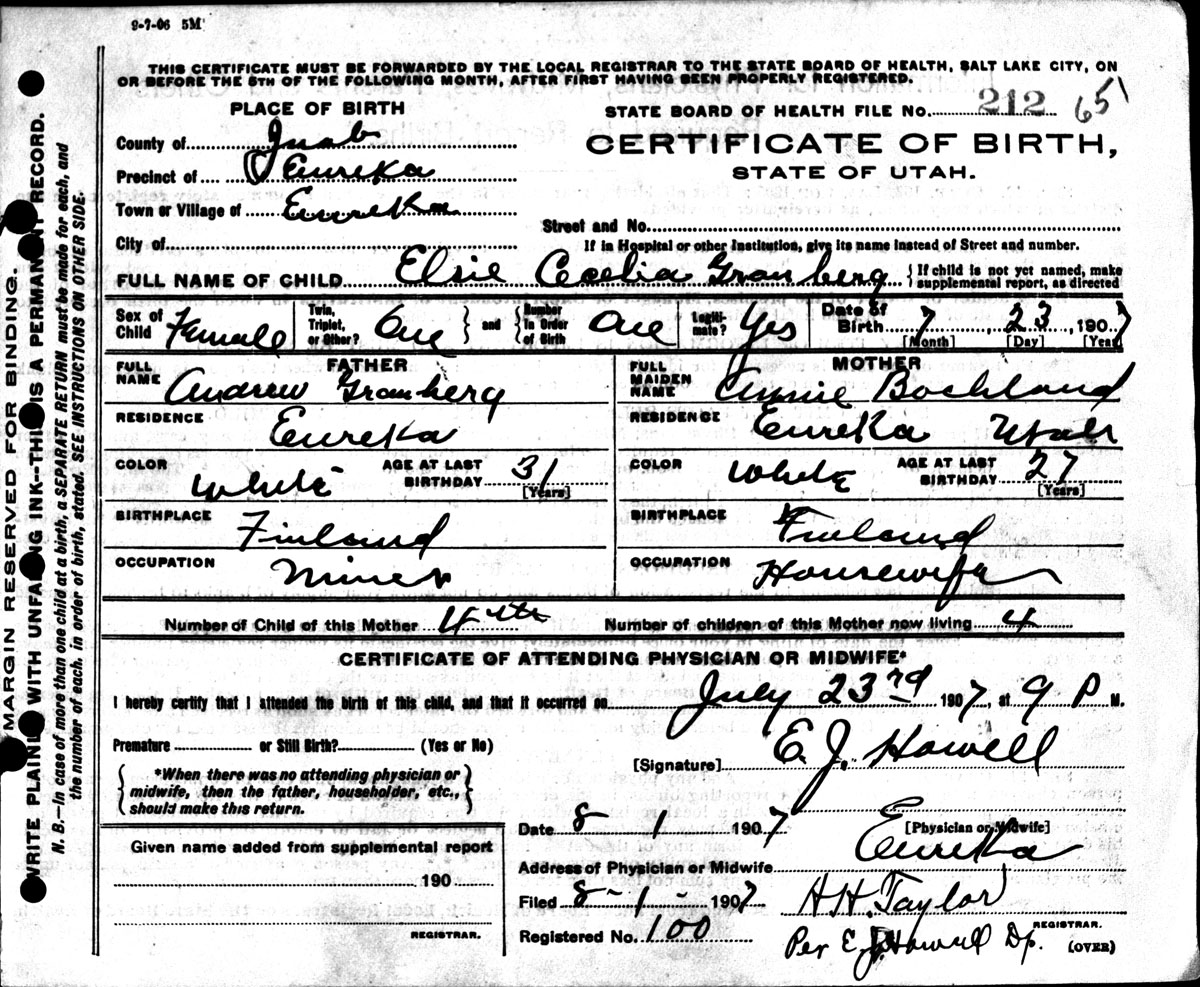 9-7-06 5M
THIS CERTIFICATE MUST BE FORWARDED BY THE LOCAL REGISTRAR TO THE STATE BOARD OF HEALTH, SALT LAKE CITY, ON
OR BEFORE THE 5TH OF THE FOLLOWING MONTH, AFTER FIRST HAVING BEEN PROPERLY REGISTERED.
PLACE OF BIRTH
STATE BOARD OF HEALTH FILE NO. 212 65
County of Juab
CERTIFICATE OF BIRTH,
Precinct of Eureka
STATE OF UTAH.
Town or Village of Eureka
Street and No.
City of
If in Hospital or other Institution, give its name instead of Street and number.
FULL NAME OF CHILD Elsie Cecelia Granberg { If child is not yet named, make supplemental report, as directed
Sex of Child Female
Twin, Triplet, or Other? One } and { Number in Order of Birth One
Legitimate? Yes
Date of Birth 7, 23, 1907
[Month] [Day] [Year]
FATHER
FULL NAME Andrew Granberg
RESIDENCE Eureka
COLOR White AGE AT LAST BIRTHDAY 31 [Years]
BIRTHPLACE Finland
OCCUPATION Miner
MOTHER
FULL MAIDEN NAME Annie
RESIDENCE Eureka Utah
COLOR White AGE AT LAST BIRTHDAY 27 [Years]
BIRTHPLACE Finland
OCCUPATION Housewife
Number of Child of this Mother 4th Number of children of this Mother now living 4
CERTIFICATE OF ATTENDING PHYSICIAN OR MIDWIFE*
I hereby certify that I attended the birth of this child, and that it occurred on July 23rd 1907, at 9 P M.
Premature or Still Birth? (Yes or No)
[Signature] E. J. Howell
{ *When there was no attending physician or
midwife, then the father, householder, etc.,
should make this return. }
Date 8 1 1907
[Physician or Midwife]
Given name added from supplemental report
Address of Physician or Midwife Eureka
190
Filed 8-1-1907 H. H. Taylor
REGISTRAR.
REGISTRAR.
Registered No. 100 Per E. J. Howell Dp. (OVER)
MARGIN RESERVED FOR BINDING.
WRITE PLAINLY WITH UNFADING INK--THIS IS A PERMANENT RECORD.
N. B.—In case of more than one child at a birth, a SEPARATE RETURN must be made for each, and
the number of each, in order of birth, stated. SEE INSTRUCTIONS ON OTHER SIDE.